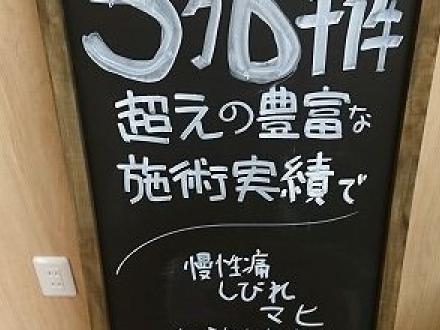 超えの豊富な
施術実績で
慢性痛
しびれ
マヒ